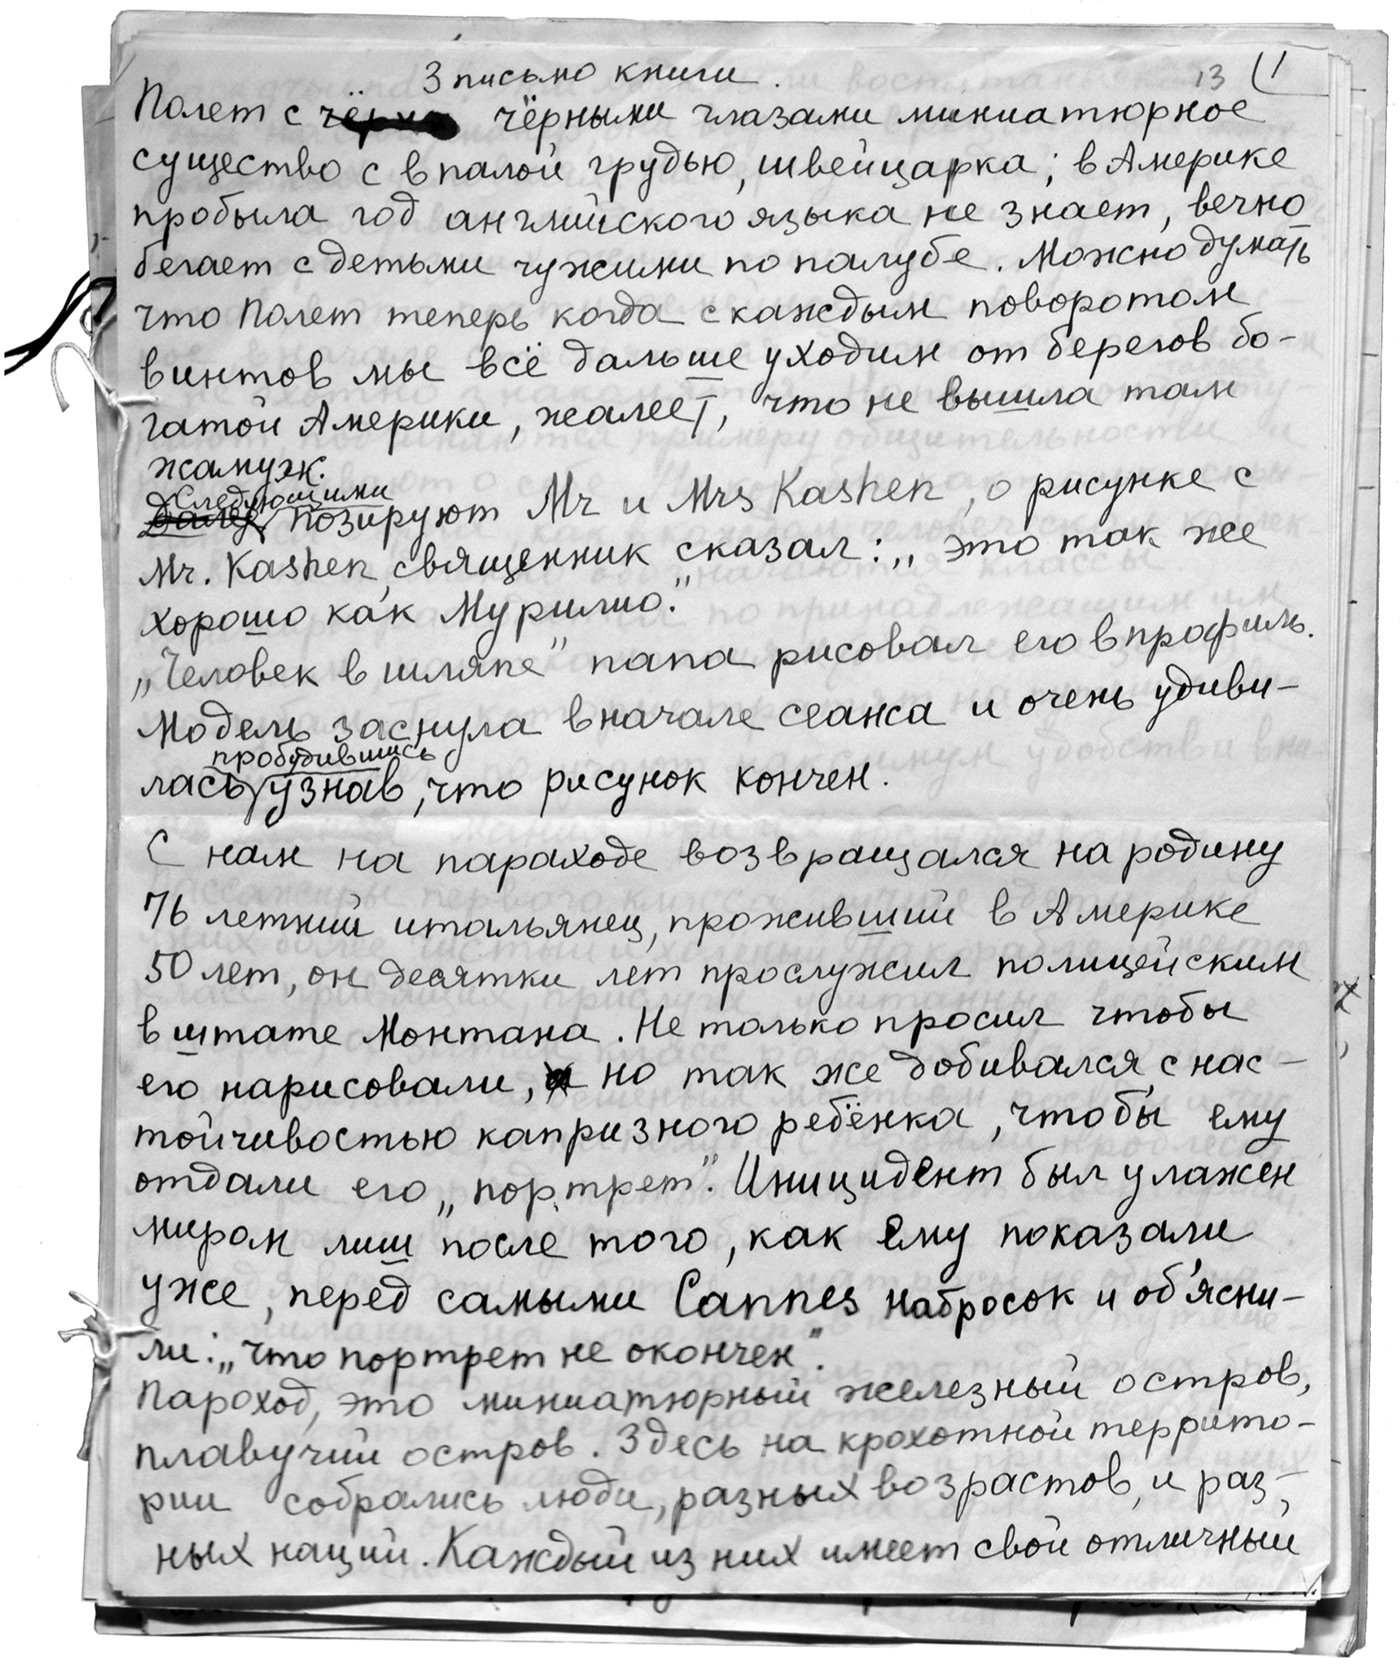 3 письмо книги. 13 1
Полет с чёрны чёрными глазами миниатюрное
существо с впалой грудью, швейцарка; в Америке
пробыла год английского языка не знает, вечно
бегает с детьми чужими по палубе. Можно думать
что Полет теперь когда с каждым поворотом
винтов мы всё дальше уходим от берегов бо-
гатой Америки, жалеет, что не вышла там
жамуж.
Следующими
Далее позируют Mr и Mrs Kashen, о рисунке с
Mr. Kashen, священник сказал: „это так же
хорошо как Мурильо."
„Человек в шляпе" папа рисовал его в профиль.
Модель заснула вначале сеанса и очень удиви-
пробудившись
лась узнав, что рисунок кончен.
С нам на параходе возвращался на родину
76 летний итальянец, проживший в Америке
50 лет, он десятки лет прослужил полицейским
в штате Монтана. Не только просил чтобы
его нарисовали, но так же добивался с нас-
тойчивостью капризного ребёнка, чтобы ему
отдали его „портрет". Иницидент был улажен
миром лиш после того, как ему показали
уже, перед самыми Cannes набросок и об'ясни-
ли: „что портрет не окончен".
Пароход, это миниатюрный железный остров,
плавучий остров. Здесь на крохотной террито-
рии собрались люди, разных возрастов, и раз-
ных наций. Каждый из них имеет свой отличный